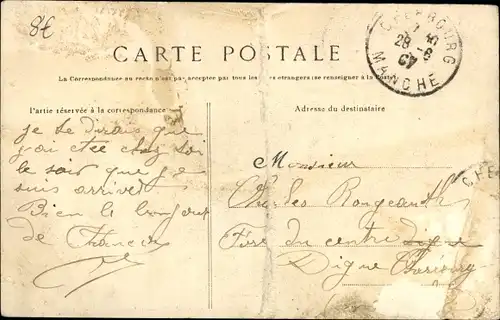 8€
CHERBOURG
28 -8
07
MANCHE
CARTE POSTALE
La Correspondance au recto n'est pas acceptée par tous les pays étrangers (se renseigner à la Poste)
Partie réservée à la correspondance
Adresse du destinataire
je te dirais que
j'ai étée chez toi
le soir que je
suis arriver
Bien le bonjour
de Francis
Monsieur
Charles
Fort du centre digue
Digue Cherbourg
CHE